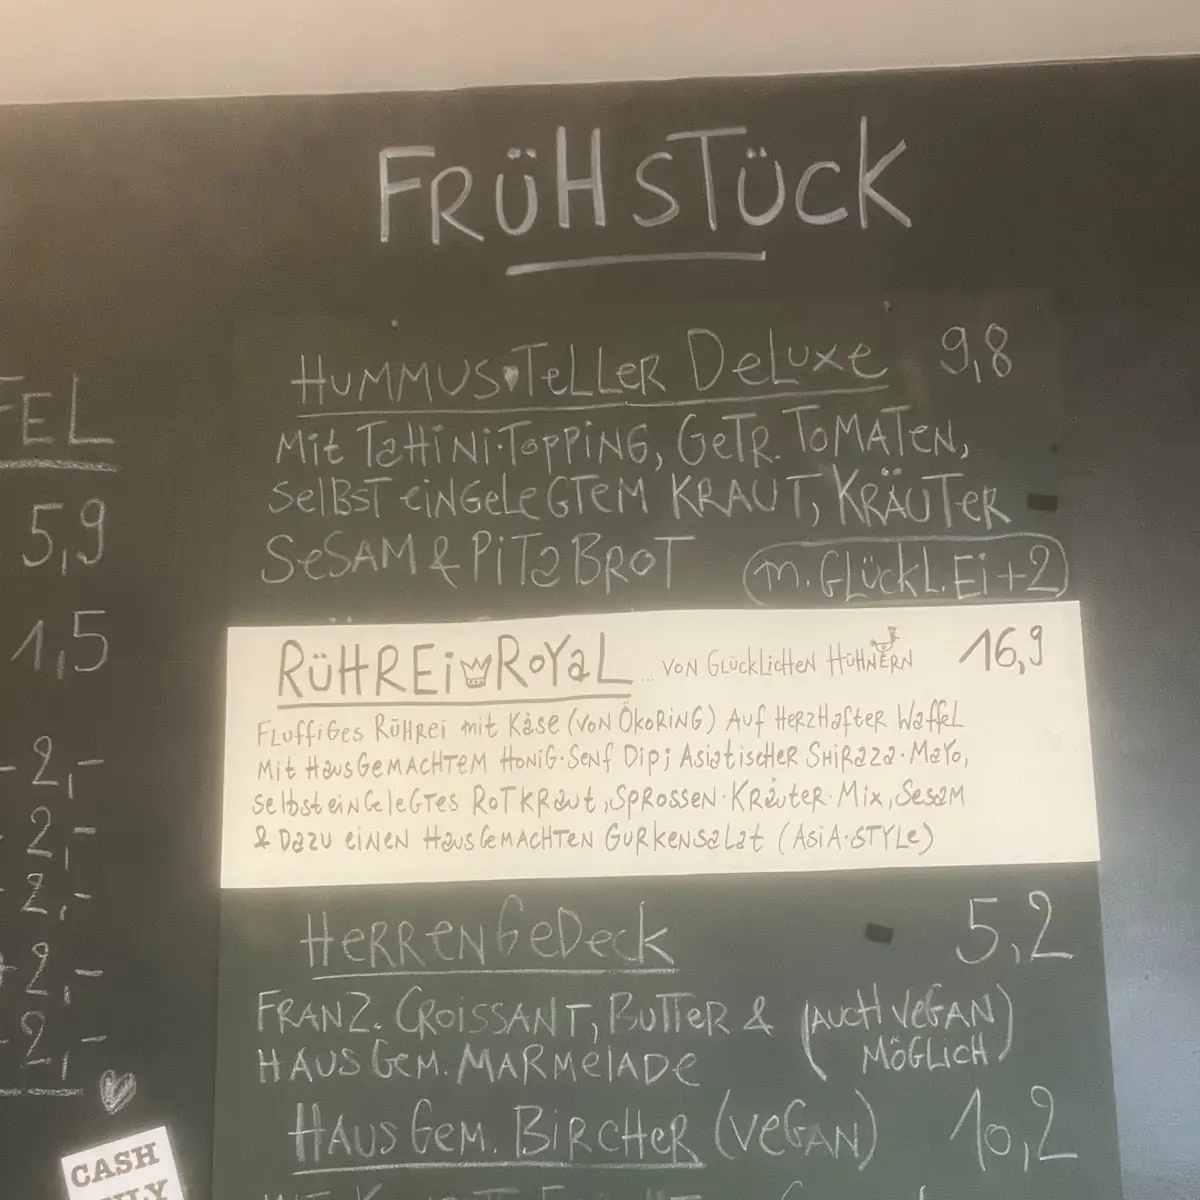 FRÜHSTÜCK
HUMMUS♥TELLER DELUXE 9,8
MIT TAHINI·TOPPING, GETR. TOMATEN,
SELBST EINGELEGTEM KRAUT, KRÄUTER
SESAM & PITABROT (m. GLÜCKL. EI +2)
RÜHREI ROYAL ... VON GLÜCKLICHEN HÜHNERN 16,9
FLUFFIGES RÜHREI MIT KÄSE (VON ÖKORING) AUF HERZHAFTER WAFFEL
MIT HAUSGEMACHTEM HONIG·SENF DIP; ASIATISCHER SHIRAZA·MAYO,
SELBSTEINGELEGTES ROTKRAUT, SPROSSEN·KRÄUTER·MIX, SESAM
& DAZU EINEN HAUSGEMACHTEN GURKENSALAT (ASIA·STYLE)
HERRENGEDECK 5,2
FRANZ. CROISSANT, BUTTER & (AUCH VEGAN
HAUSGEM. MARMELADE MÖGLICH)
HAUSGEM. BIRCHER (VEGAN) 10,2
FEL
5,9
1,5
-2,-
2,-
2,-
+2,-
2,-
CASH